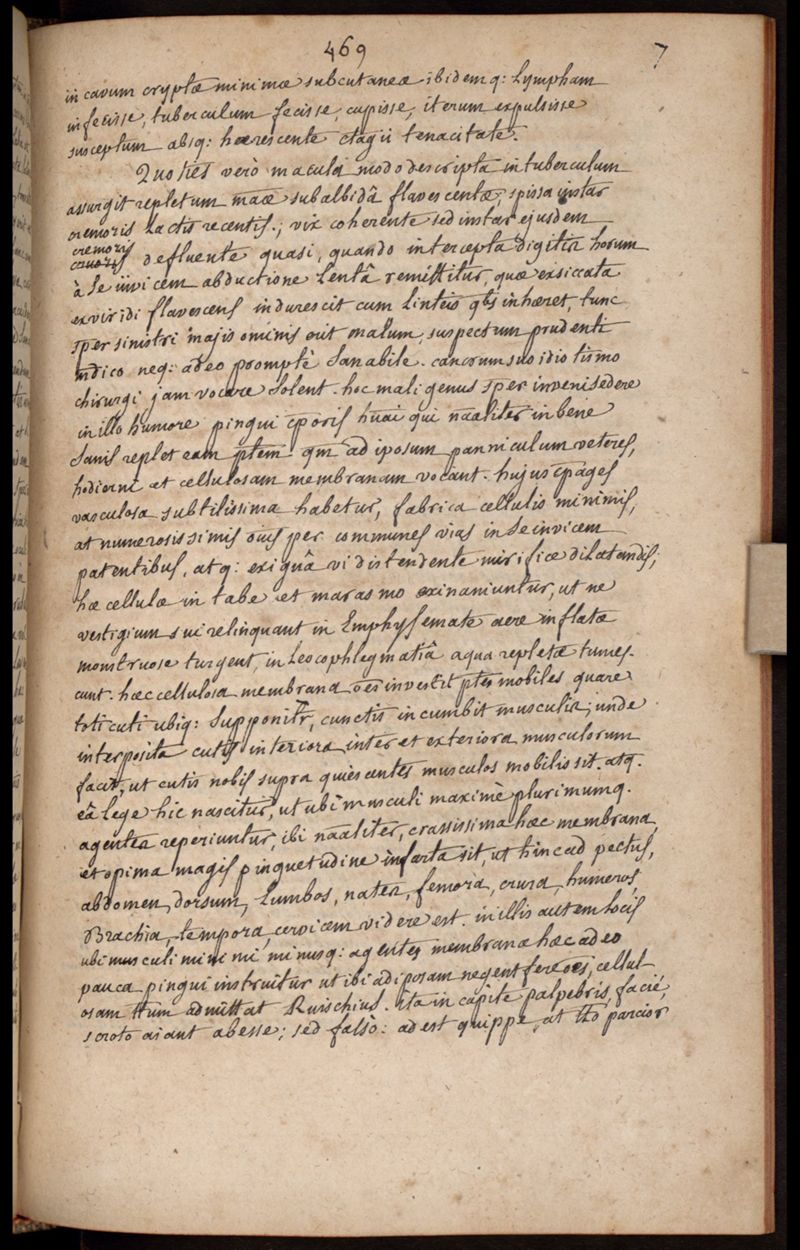 469
7
in cavum cryptæ minimæ subcutaneæ ibidemq: Lympham
infecisse, tuberculum fecisse, cupisse, iterum expulsisse
susceptum absq: hærescente ctagii tenacitate.
Quoties verò macula modo descripta in tuberculum
assurgit repletum maæ subalbidâ flavescentæ, spissa instar
cremoris Lactis recentis, vix coherente sed instar ejusdem
cremoris
defluente quasi, quando intercepta digitis horum
à se iivicem abductione Lentâ remittitur, quæ exsiccata
ex viridi flavescens indurescit cum Linteis qbs inhæret, tunc
sper sinistri majis ominis erit malum, suspectum prudenti
mdico neq: adeo promptè sanabile. cancrum suo idiotismo
chirurgi jam vocare solent. hoc mali genus sper inveni sedere
in illo humore pingui cporis huai qui naaliter in bene
sanis replet eam ptem qm adiposum panniculum veteres,
hodierni at cellulosam membranam vocant. hujus cpages
vasculosa subtilissima habetur, fabrica cellulis minimis,
at numerosissimis oius per communes vias in se invicem
patentibus, atq: exiguâ vi distendente mirifice dilatandis;
hæ cellulæ in tabe et marasmo exinaniuntur, ut ne
vestigium sui relinquant in Emphysemate aere inflatæ
monstruose turgent, in Leocophlegmatiâ aqua repletæ tumes-
cunt. hæc cellulosa membrana oes investit ptes mobiles quare
toti cuti ubiq: supponitr, cunctis incumbit musculis; unde
interposita cutis interiora inter et exteriora musculorum
facit, ut cutis nobis supra quiescentes musculos mobilis sit. atq.
eâ lege hic nascitur, ut ubi musculi maximè plurimumq.
agentes reperiuntur, ibi naaliter, crassissima hæc membrana,
et opima magis pinguetudine infarta sit, ut hinc ad pectus,
abdomen, dorsum, Lumbos, nates, femora, crura, humeros,
Brachia, tempora, cervicem videre est. in illis autem Locis
ubi musculi minimi minusq: agentes membrana hæc adeo
pauca pingui instruitur ut ibi adiposam negent fere oes, cellul
osam ttum admittat Ruischius. ita in capite palpebris, facie,
scroto aiant abesse; sed falsò: adest quippe, at tto parcior